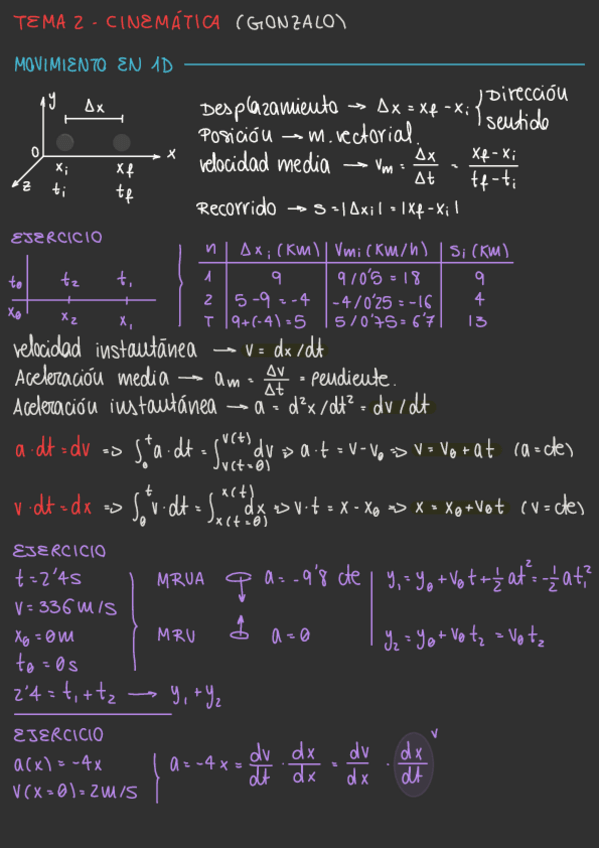 TEMA 2 - CINEMÁTICA (GONZALO)
MOVIMIENTO EN 1D
y
Δx
0
x
z
xi xf
ti tf
Desplazamiento → Δx = xf - xi { Dirección
sentido
Posición → m. vectorial.
velocidad media → vm = Δx/Δt = (xf - xi)/(tf - ti)
Recorrido → s = |Δxi| = |xf - xi|
EJERCICIO
t0 t2 t1
x0 x2 x1
n | Δxi (Km) | Vmi (Km/h) | Si (Km)
1 | 9 | 9/0'5 = 18 | 9
2 | 5-9 = -4 | -4/0'25 = -16 | 4
T | 9+(-4) = 5 | 5/0'75 = 6'7 | 13
velocidad instantánea → v = dx/dt
Aceleración media → am = Δv/Δt = Pendiente.
Aceleración instantánea → a = d²x/dt² = dv/dt
a·dt = dv => ∫₀ᵗ a·dt = ∫ᵥ₍ₜ₌₀₎ᵛ⁽ᵗ⁾ dv => a·t = v - v0 => v = v0 + at (a = cte)
v·dt = dx => ∫₀ᵗ v·dt = ∫ₓ₍ₜ₌₀₎ˣ⁽ᵗ⁾ dx => v·t = x - x0 => x = x0 + v0t (v = cte)
EJERCICIO
t = 2'4s
v = 336 m/s
x0 = 0m
t0 = 0s
MRUA a = -9'8 cte
MRU a = 0
y1 = y0 + v0t + 1/2 at² = -1/2 at1²
y2 = y0 + v0t2 = v0t2
2'4 = t1 + t2 → y1 + y2
EJERCICIO
a(x) = -4x
v(x=0) = 2m/s
a = -4x = dv/dt · dx/dx = dv/dx · dx/dt v